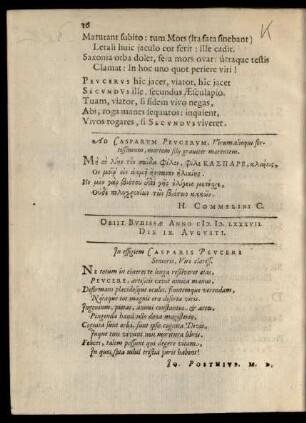 26
Maturant subito: tum Mors (ita fata sinebant)
Letali huic jaculo cor ferit: ille cadit.
Saxonia orba dolet, seva mors ovat: utraque testis
Clamat: In hoc uno quot periere viri!
PEUCERUS hîc jacet, viator, hîc jacet
SECUNDUS ille, secundus Æsculapio.
Tuam, viator, si fidem vivo negas,
Abi, roga manes sequutos: inquient,
Vivos rogares, si SECUNDUS viveret.
AD CASPARUM PEUCERUM. Virum alioqui for-
tissimum, mortem filij graviter mœrentem.
H. COMMELINI C.
OBIIT BUDISSÆ ANNO CIƆ IƆ LXXXVII.
DIE IX. AUGUSTI.
In effigiem CASPARIS PEUCERI
Senioris, Viri clariss.
NE totum in cineres te longa resolveret ætas,
PEUCERE, artificis cavit amica manus,
Deformans placidósque oculos, frontemque verendam,
Néve tot magnis era deserta viris.
Ingenium, pietas, animi constantia, & artes,
Pingenda haud ulli
Cognita sunt orbi, sunt ipsi cognita Divis,
Inque tuis vivent non moritura libris.
Felices, talem possent qui degere vitam,
In qua, fata nihil tristia juris habent!
IO. POSTHIUS. M. D.